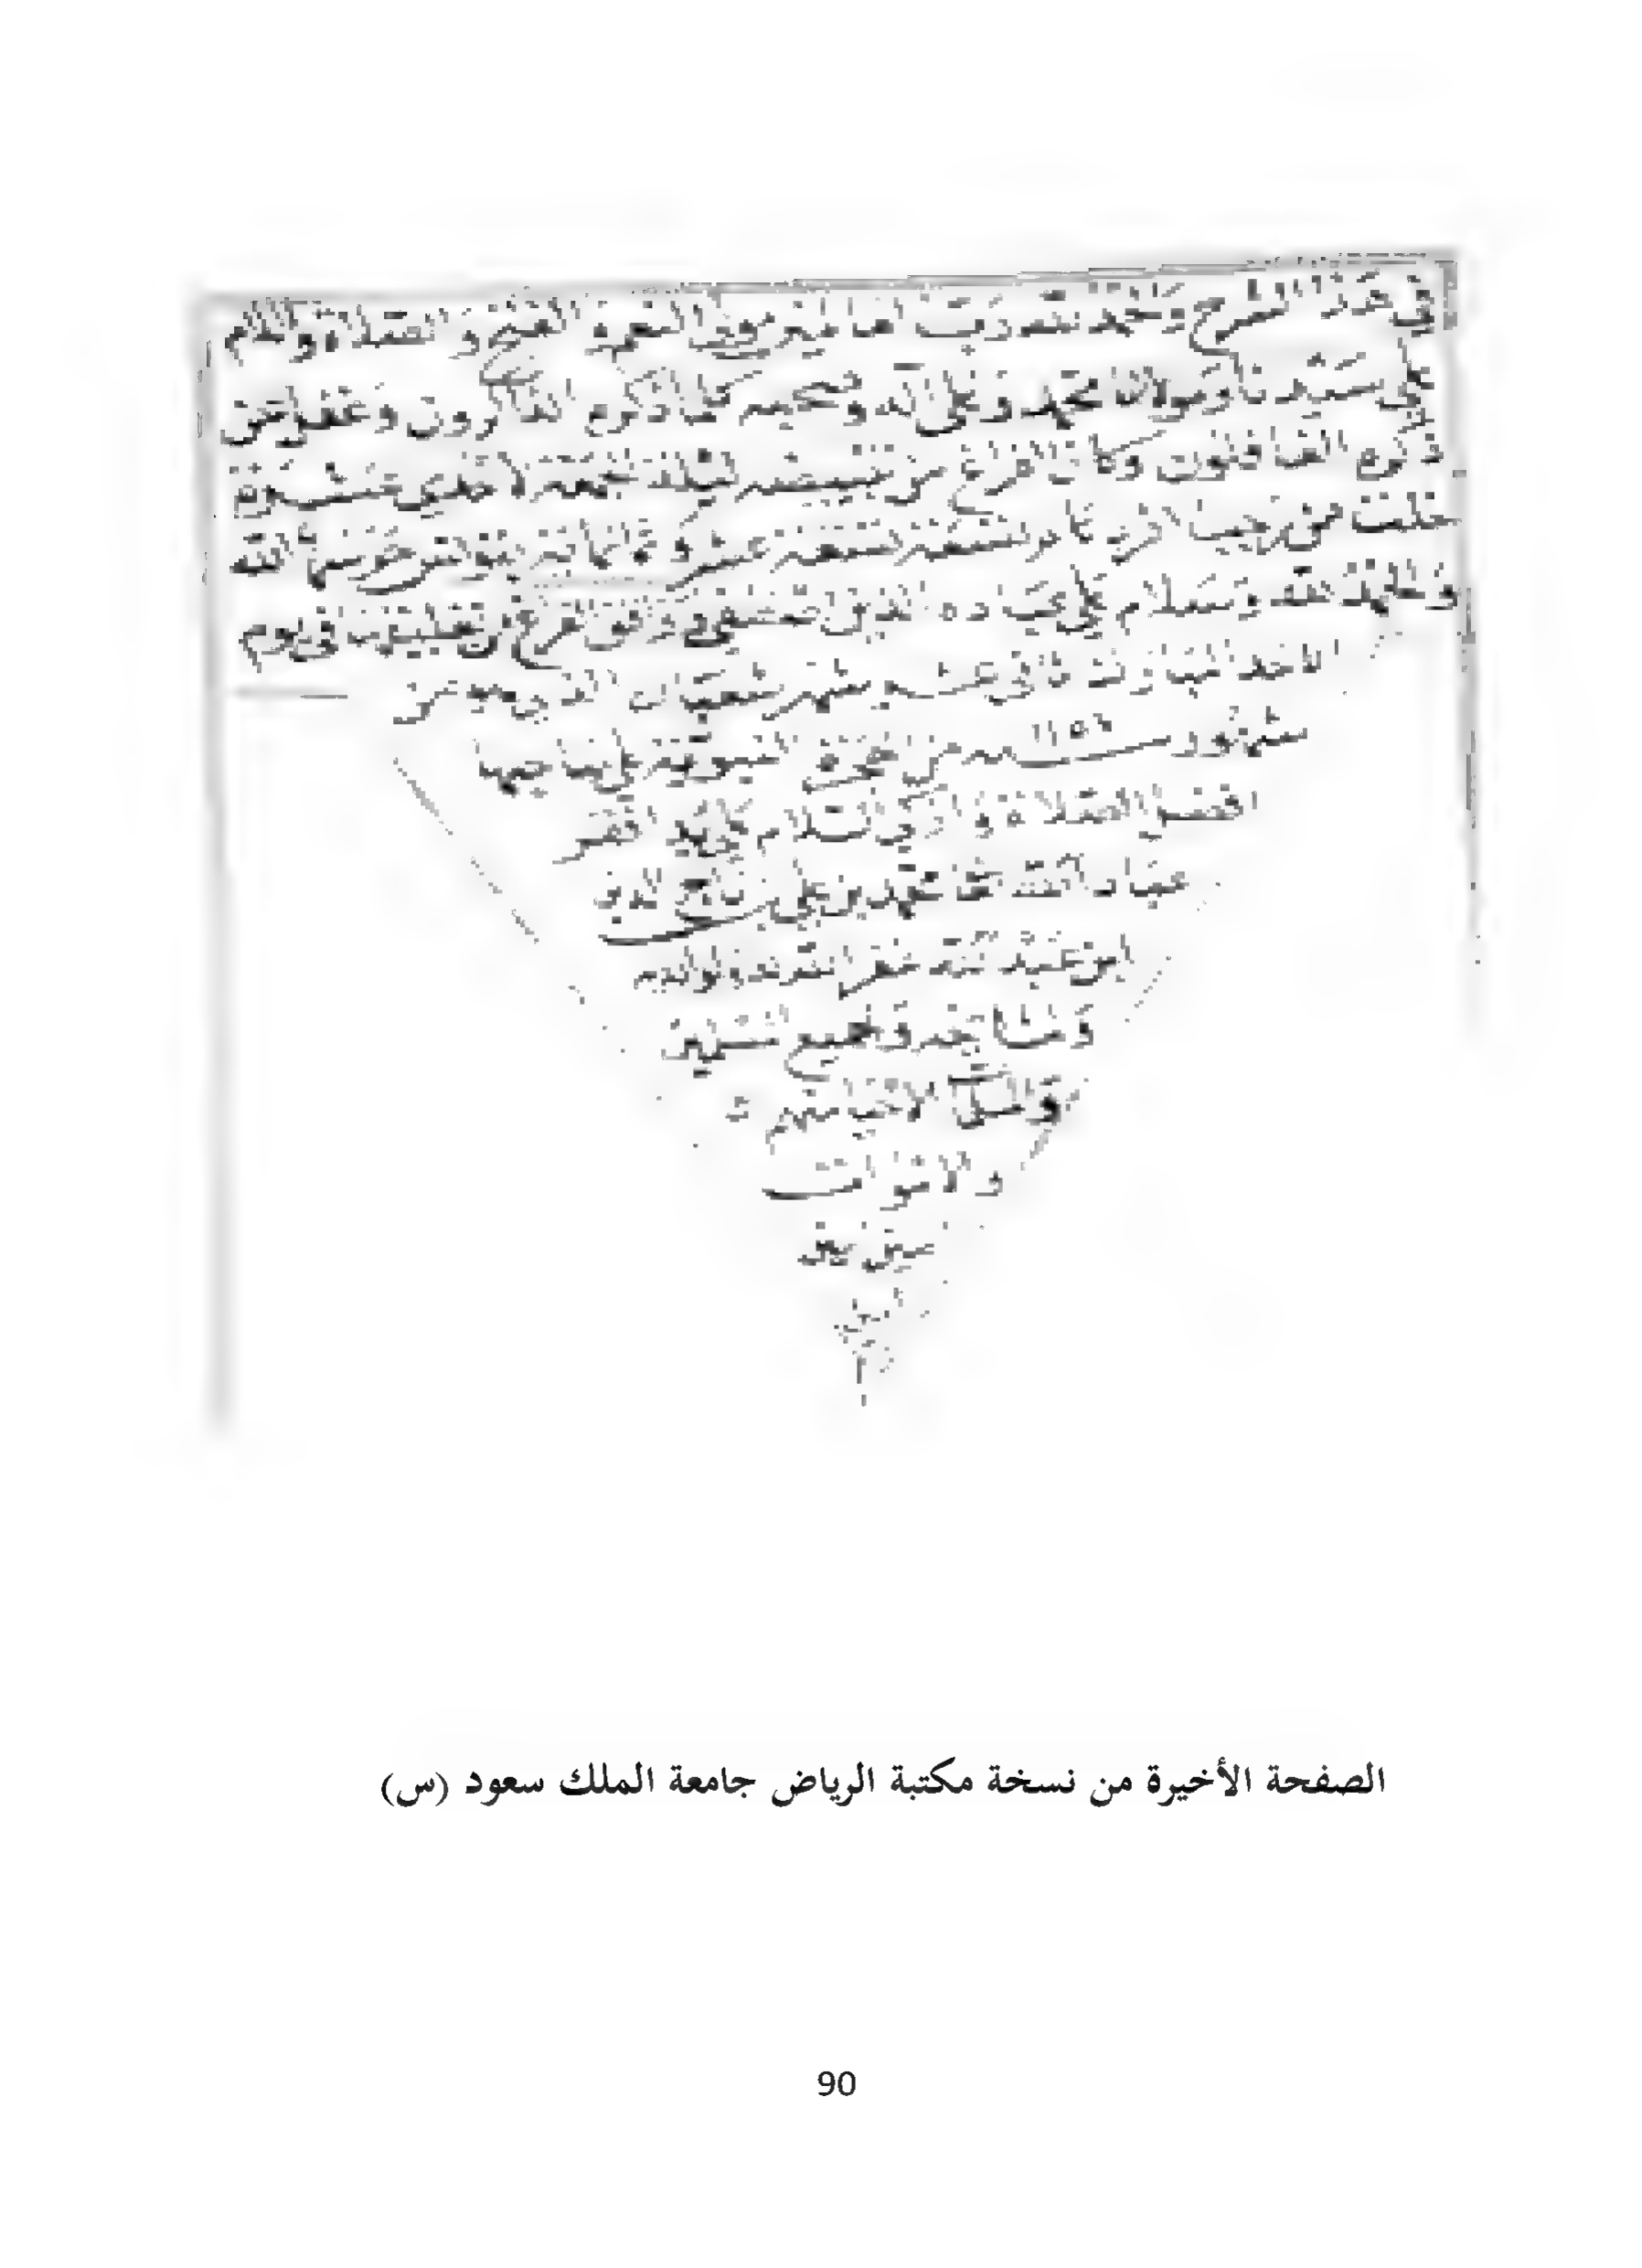 في هذا الشرح والحمد لله رب العالمين والصلاة والسلام
على سيدنا ومولانا محمد وعلى آله وصحبه كلما ذكره الذاكرون وغفل عن
ذكره الغافلون وكان الفراغ من تبييضه ليلة الجمعة لاحدى عشرة
خلت من رجب سنة تسعة عشر وثمانمائة بتونس حرسها الله
والحمد لله وسلام على عباده الذين اصطفى ووافق الفراغ من تعليقه في يوم
الاحد المبارك ثاني عشر شهر شعبان الذي هو من
شهور سنة ١١٥٦ من الهجرة النبوية على صاحبها
افضل الصلاة وازكى السلام على يد افقر
عباد الله محمد بن علي بن تاج الدين
ابن عبد الله غفر الله له ولوالديه
ومشايخه ولجميع المسلمين
الاحيا منهم
والاموات
امين
الصفحة الأخيرة من نسخة مكتبة الرياض جامعة الملك سعود (س)
90